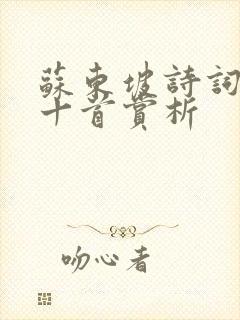 蘇東坡詩詞
十首賞析
吻心者